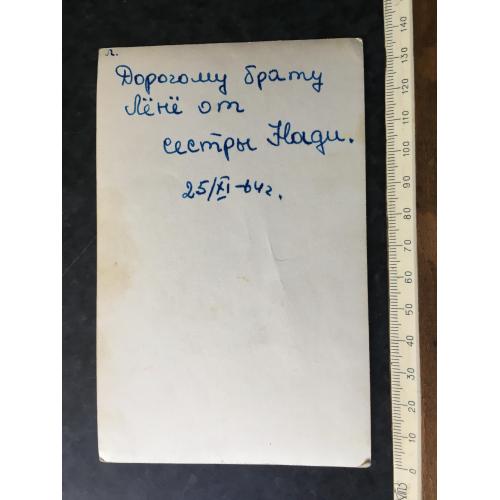 л.
Дорогому брату
Лёнё от
сестры Нади.
25/XI-64г.
140
130
120
110
100
90
80
70
60
50
40
30
20
10
0